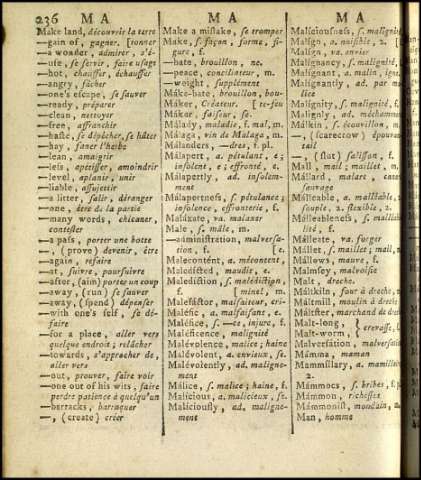 236 M A M A M A
Make land, découvrir la terre
—gain of, gagner. [tonner
—a wonder, admirer, s'é-
—use, se servir, faire usage
—hot, chauffer, échauffer
—angry, fâcher
—one's escape, se sauver
—ready, préparer
—clean, nettoyer
—free, affranchir
—haste, se dépêcher, se hâter
—hay, faner l'herbe
—lean, amaigrir
—less, apétisser, amoindrir
—level, aplanir, unir
—liable, assujettir
—a litter, salir, déranger
—one, être de la partie
—many words, chicaner,
contester
—a pass, porter une botte
—, (prove) devenir, être
—again, refaire
—at, suivre, poursuivre
—after, (aim) porter un coup
—away, (run) se sauver
—away, (spend) dépenser
—with one's self, se dé-
faire
—for a place, aller vers
quelque endroit; relâcher
—towards, s'approcher de,
aller vers
—out, prouver, faire voir
—one out of his wits, faire
perdre patience à quelqu'un
—barracks, barraquer
—, (create) créer
Make a mistake, se tromper
Make, s. façon, forme, fi-
gure, f.
—hate, brouillon, ne.
—peace, conciliateur, m.
—weight, supplément
Máke-hate, brouillon, bou-
Máker, Créateur. [te-feu
Máker, faiseur, se.
Málady, maladie, f. mal, m.
Málaga, vin de Malaga, m.
Málanders, —dres, f. pl.
Málapert, a. pétulant, e;
insolent, e; effronté, e.
Málapertly, ad. insolem-
ment
Málapertness, s. pétulance;
insolence, effronterie, f.
Maláxate, va. malaxer
Male, s. mâle, m.
—administration, malversa-
tion, f.
Malecontént, a. mécontent,
Maledícted, maudit, e. [e.
Malediction, s. malédiction,
f. [minel, m.
Malefáctor, malfaiteur, cri-
Maléfic, a. malfaisant, e.
Maléfice, s. —ce, injure, f.
Maléficence, malignité
Malévolence, malice; haine
Malévolent, a. envieux, se.
Malévolently, ad. maligne-
ment
Málice, s. malice; haine, f.
Malícious, a. malicieux, se.
Malíciously, ad. maligne-
ment
Malíciousness, s. malignité
Malígn, a. nuisible, 2. [
Malígn, va. envier
Malígnancy, s. malignité, f.
Malígnant, a. malin, igne.
Malígnantly, ad. par ma-
lice
Malígnity, s. malignité, f.
Malígnly, ad. méchamment
Málkin, s. écouvillon, m.
—, (scarecrow) épouvan-
tail
—, (slut) salisson, f.
Mall, mail; maillet, m.
Mállard, malart, canard
sauvage
Málleable, a. malléable,
souple, 2. flexible, 2.
Málleableness, s. malléabi-
lité, f.
Málleate, va. forger
Mállet, s. maillet; mail, m.
Mállows, mauve, f.
Malmsey, malvoisie
Malt, dreche.
Máltkiln, four à dreche, m.
Máltmill, moulin à dreche
Máltster, marchand de dreche
Malt-long, } crevasse,
Malt-worm,
Malversátion, malversation
Mámma, maman
Mammíllary, a. mamillaire,
2.
Mámmocs, s. bribes, f. pl.
Mámmon, richesses
Mámmonist, mondain, m.
Man, homme